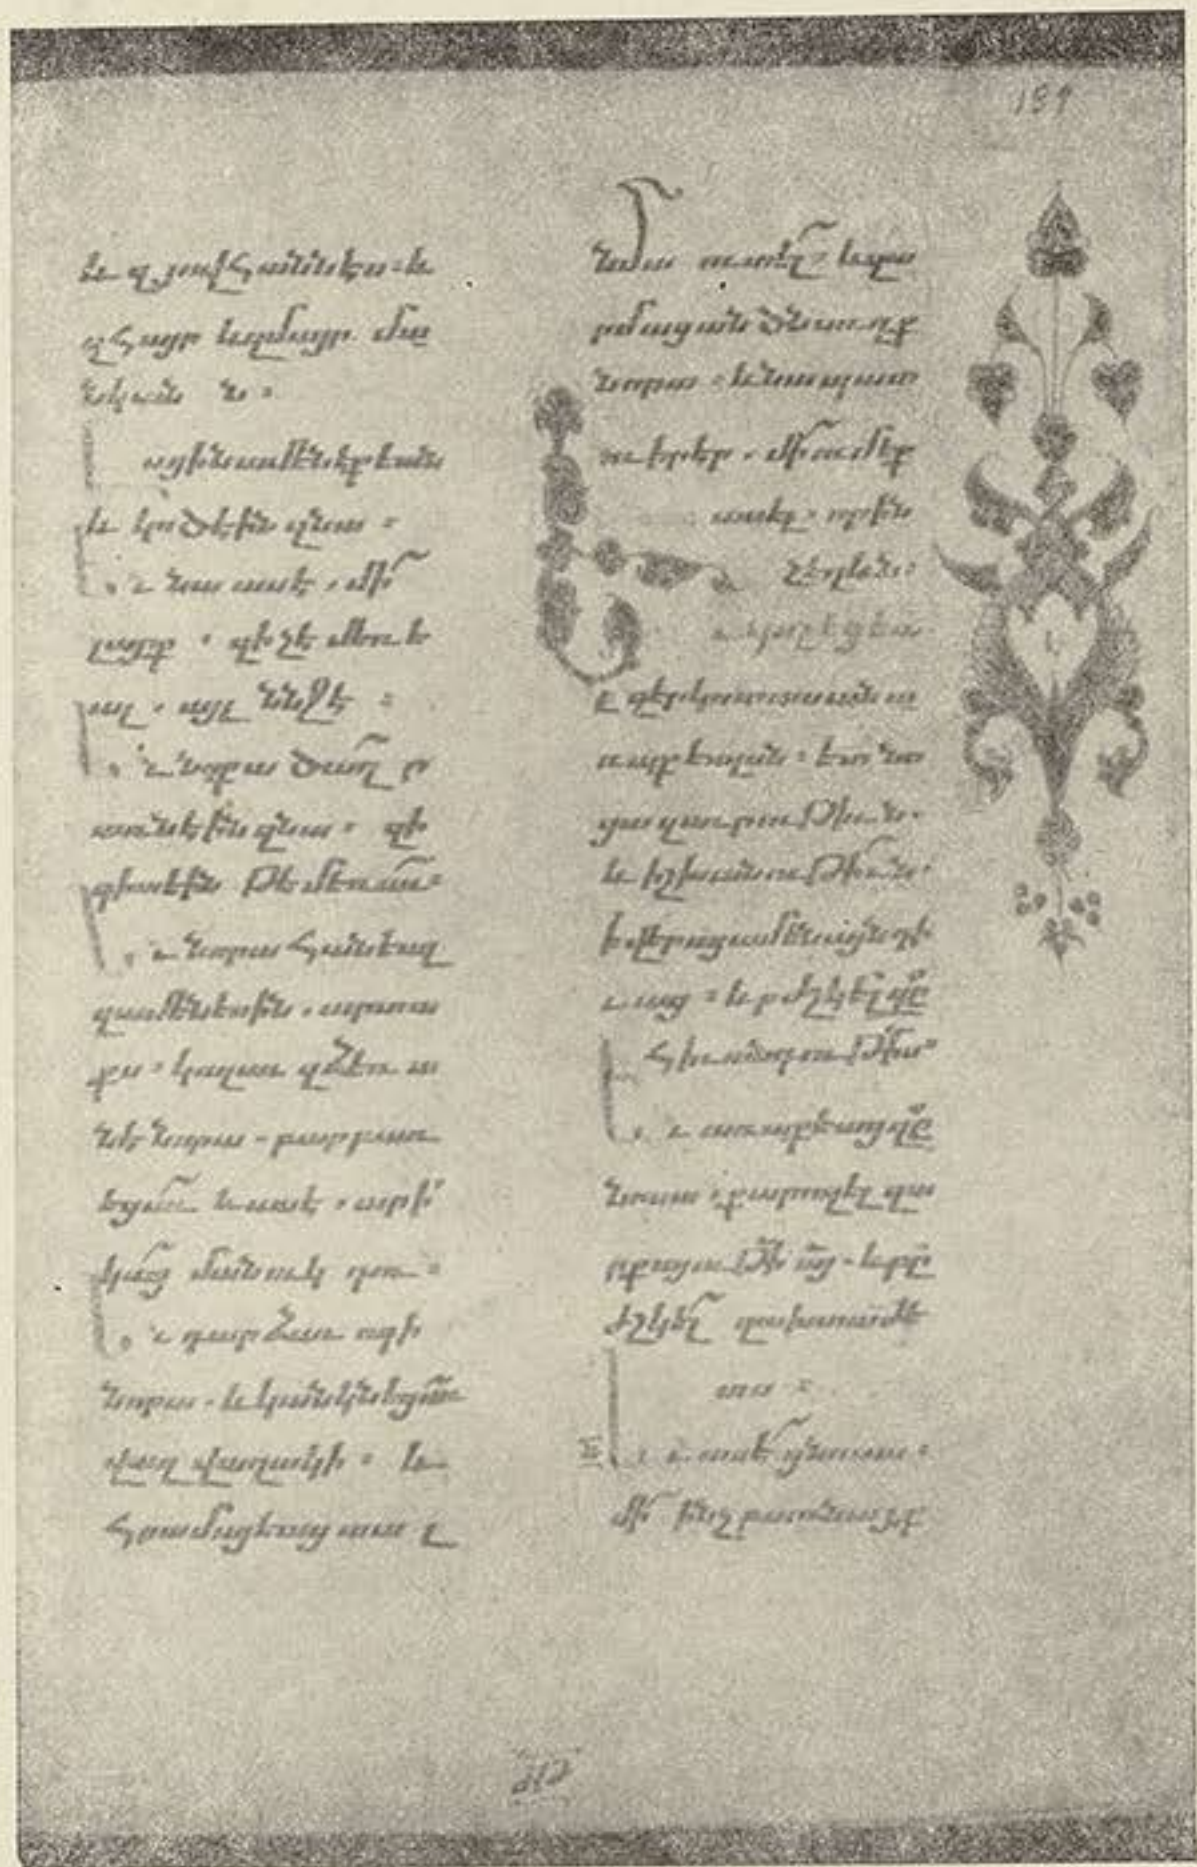 և զյովհաննէս. և
զհայր եւ զմայր մա
նկան ն։
ային ամենեքեան
և կոծէին զնա։
ւ նա ասէ. մի
լայք. զի չէ մեռե
ալ. այլ ննջէ։
ւ նոքա ծաղր ը
առնէին զնա. զի
գիտէին թէ մեռաւ։
ւ նորա հանեալ
զամենեսին. արտա
քս. կալաւ զձեռա
նէ նորա. բարբառ
եցաւ և ասէ. արի
կաց մանուկ դու։
ւ դարձաւ ոգի
նորա. և կանկնեցաւ
վաղվաղակի։ և
հրամայեաց տալ
նմա ուտել. և զա
րմացան ծնաւղք
նորա. և նա պատ
ուիրեր. մի ումեք
ասել. զորին
չ եղեւն։
ւ կոչեցեա
լ զերկոտասան ա
ռաքեալսն. ետ նո
ցա զաւրութիւն.
և իշխանութիւն.
ի վերայ ամենայն դի
ւաց. և բժշկել զը
հիւանդութիւնս։
ւ առաքեաց զը
նոսա. քարոզել զա
րքայութի այ. և բը
ժշկել զախտաժե
տս։
ւ ասէ ցնոսա.
մի ինչ բառնայք